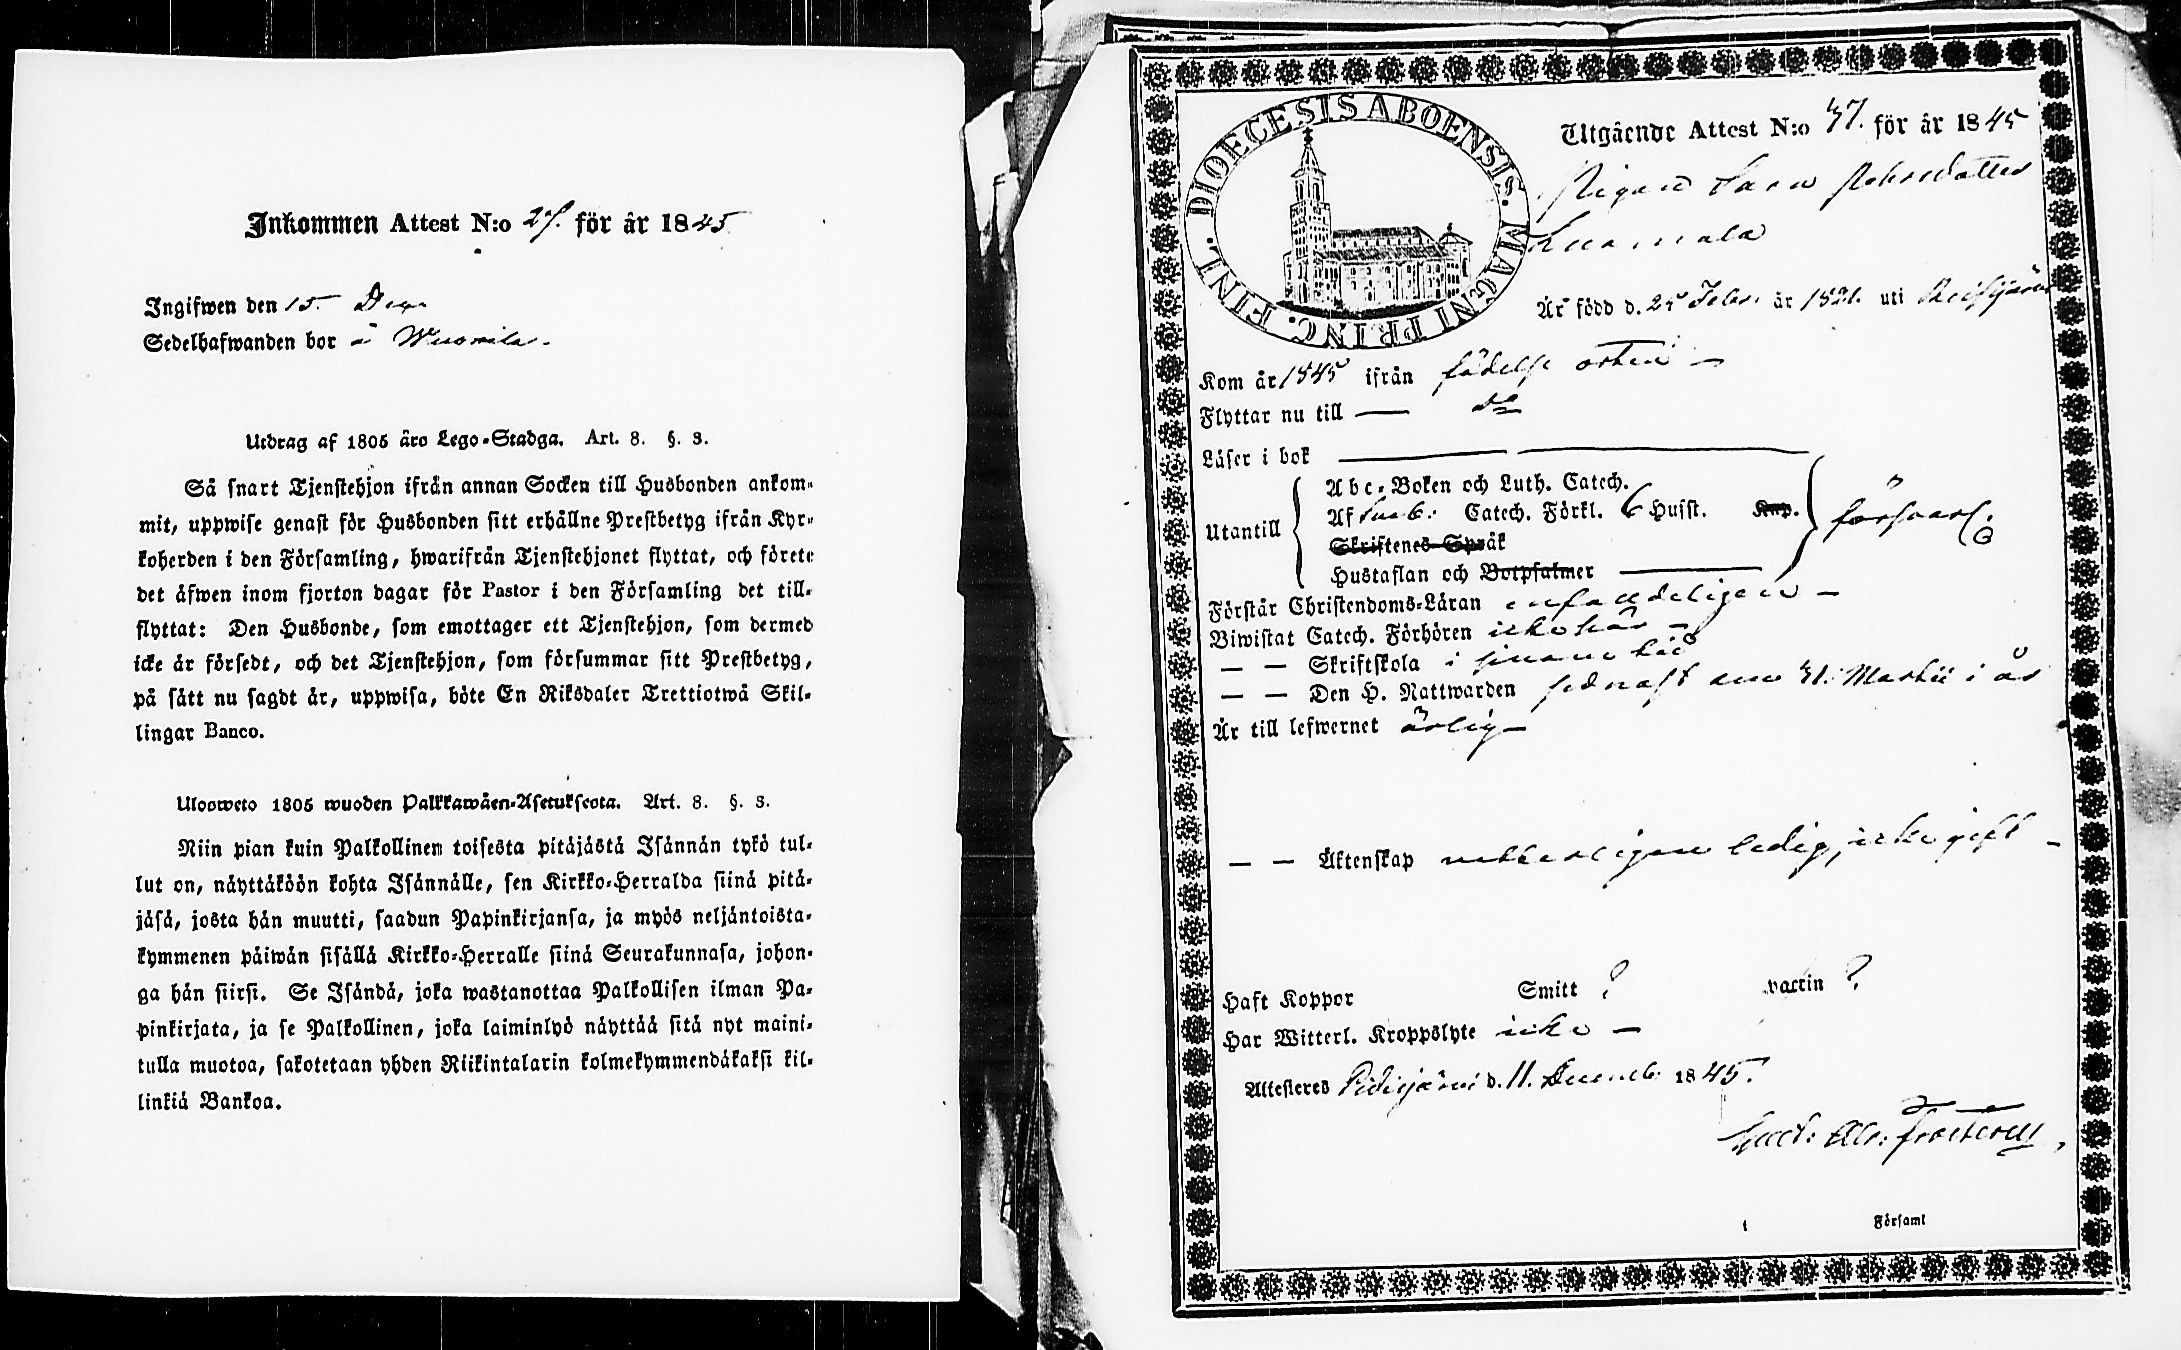 Inkommen Attest N:o 27. för år 1845
Ingifwen den 15. Dec
Sedelhafwanden bor å Wuorila.
Utdrag af 1805 års Lego-Stadga. Art. 8. §. 3.
Så snart Tjenstehjon ifrån annan Socken till Husbonden ankom-
mit, uppwise genast för Husbonden sitt erhållne Prestbetyg ifrån Kyr-
koherden i den Församling, hwarifrån Tjenstehjonet flyttat, och förete
det äfwen inom fjorton dagar för Pastor i den Församling det till-
flyttat: Den Husbonde, som emottager ett Tjenstehjon, som dermed
icke är försedt, och det Tjenstehjon, som försummar sitt Prestbetyg,
på sätt nu sagdt är, uppwisa, böte En Riksdaler Trettiotwå Skil-
lingar Banco.
Ulosweto 1805 wuoden Palkkawäen-Asetuksesta. Art. 8. §. 3.
Niin pian kuin Palkollinen toisesta pitäjästä Isännän tykö tul-
lut on, näyttäköön kohta Isännälle, sen Kirkko-Herralda siinä pitä-
jäsä, josta hän muutti, saadun Papinkirjansa, ja myös neljäntoista-
kymmenen päiwän sisällä Kirkko-Herralle siinä Seurakunnasa, johon-
ga hän siirsi. Se Isändä, joka wastanottaa Palkollisen ilman Pa-
pinkirjata, ja se Palkollinen, joka laiminlyö näyttää sitä nyt maini-
tulla muotoa, sakotetaan yhden Riikintalarin kolmekymmendäkaksi kil-
linkiä Bankoa.
DIOECESIS ABOENSIS. MAGNI PRINC. FINL.
Utgående Attest N:o 37. för år 1845
Pigan Sara Johnsdotter
Luomala
Är född d. 25 Febr. år 1821. uti Reisjärvi
Kom år 1845 ifrån födelse orten —
Flyttar nu till — do
Läser i bok
Utantill
Abc-Boken och Luth. Catech.
Af Sveb. Catech. Förkl. 6 Husst. Kap.
Skriftenes Språk
Hustaflan och Botpsalmer
försvarl.
Förstår Christendoms-Läran enfaldeligen —
Biwistat Catech. Förhören icke här —
— — Skriftskola i sinom tid
— — Den H. Nattwarden sednast den 31. Martii i år
Är till lefwernet ärlig —
— — Äktenskap vetterligen ledig, icke gift —
Haft Koppor Smitt ? vaccin ?
Har Witterl. Kroppslyte icke —
Attesteres Pidisjärvi d. 11. Decemb. 1845.
Frosterus
Församl